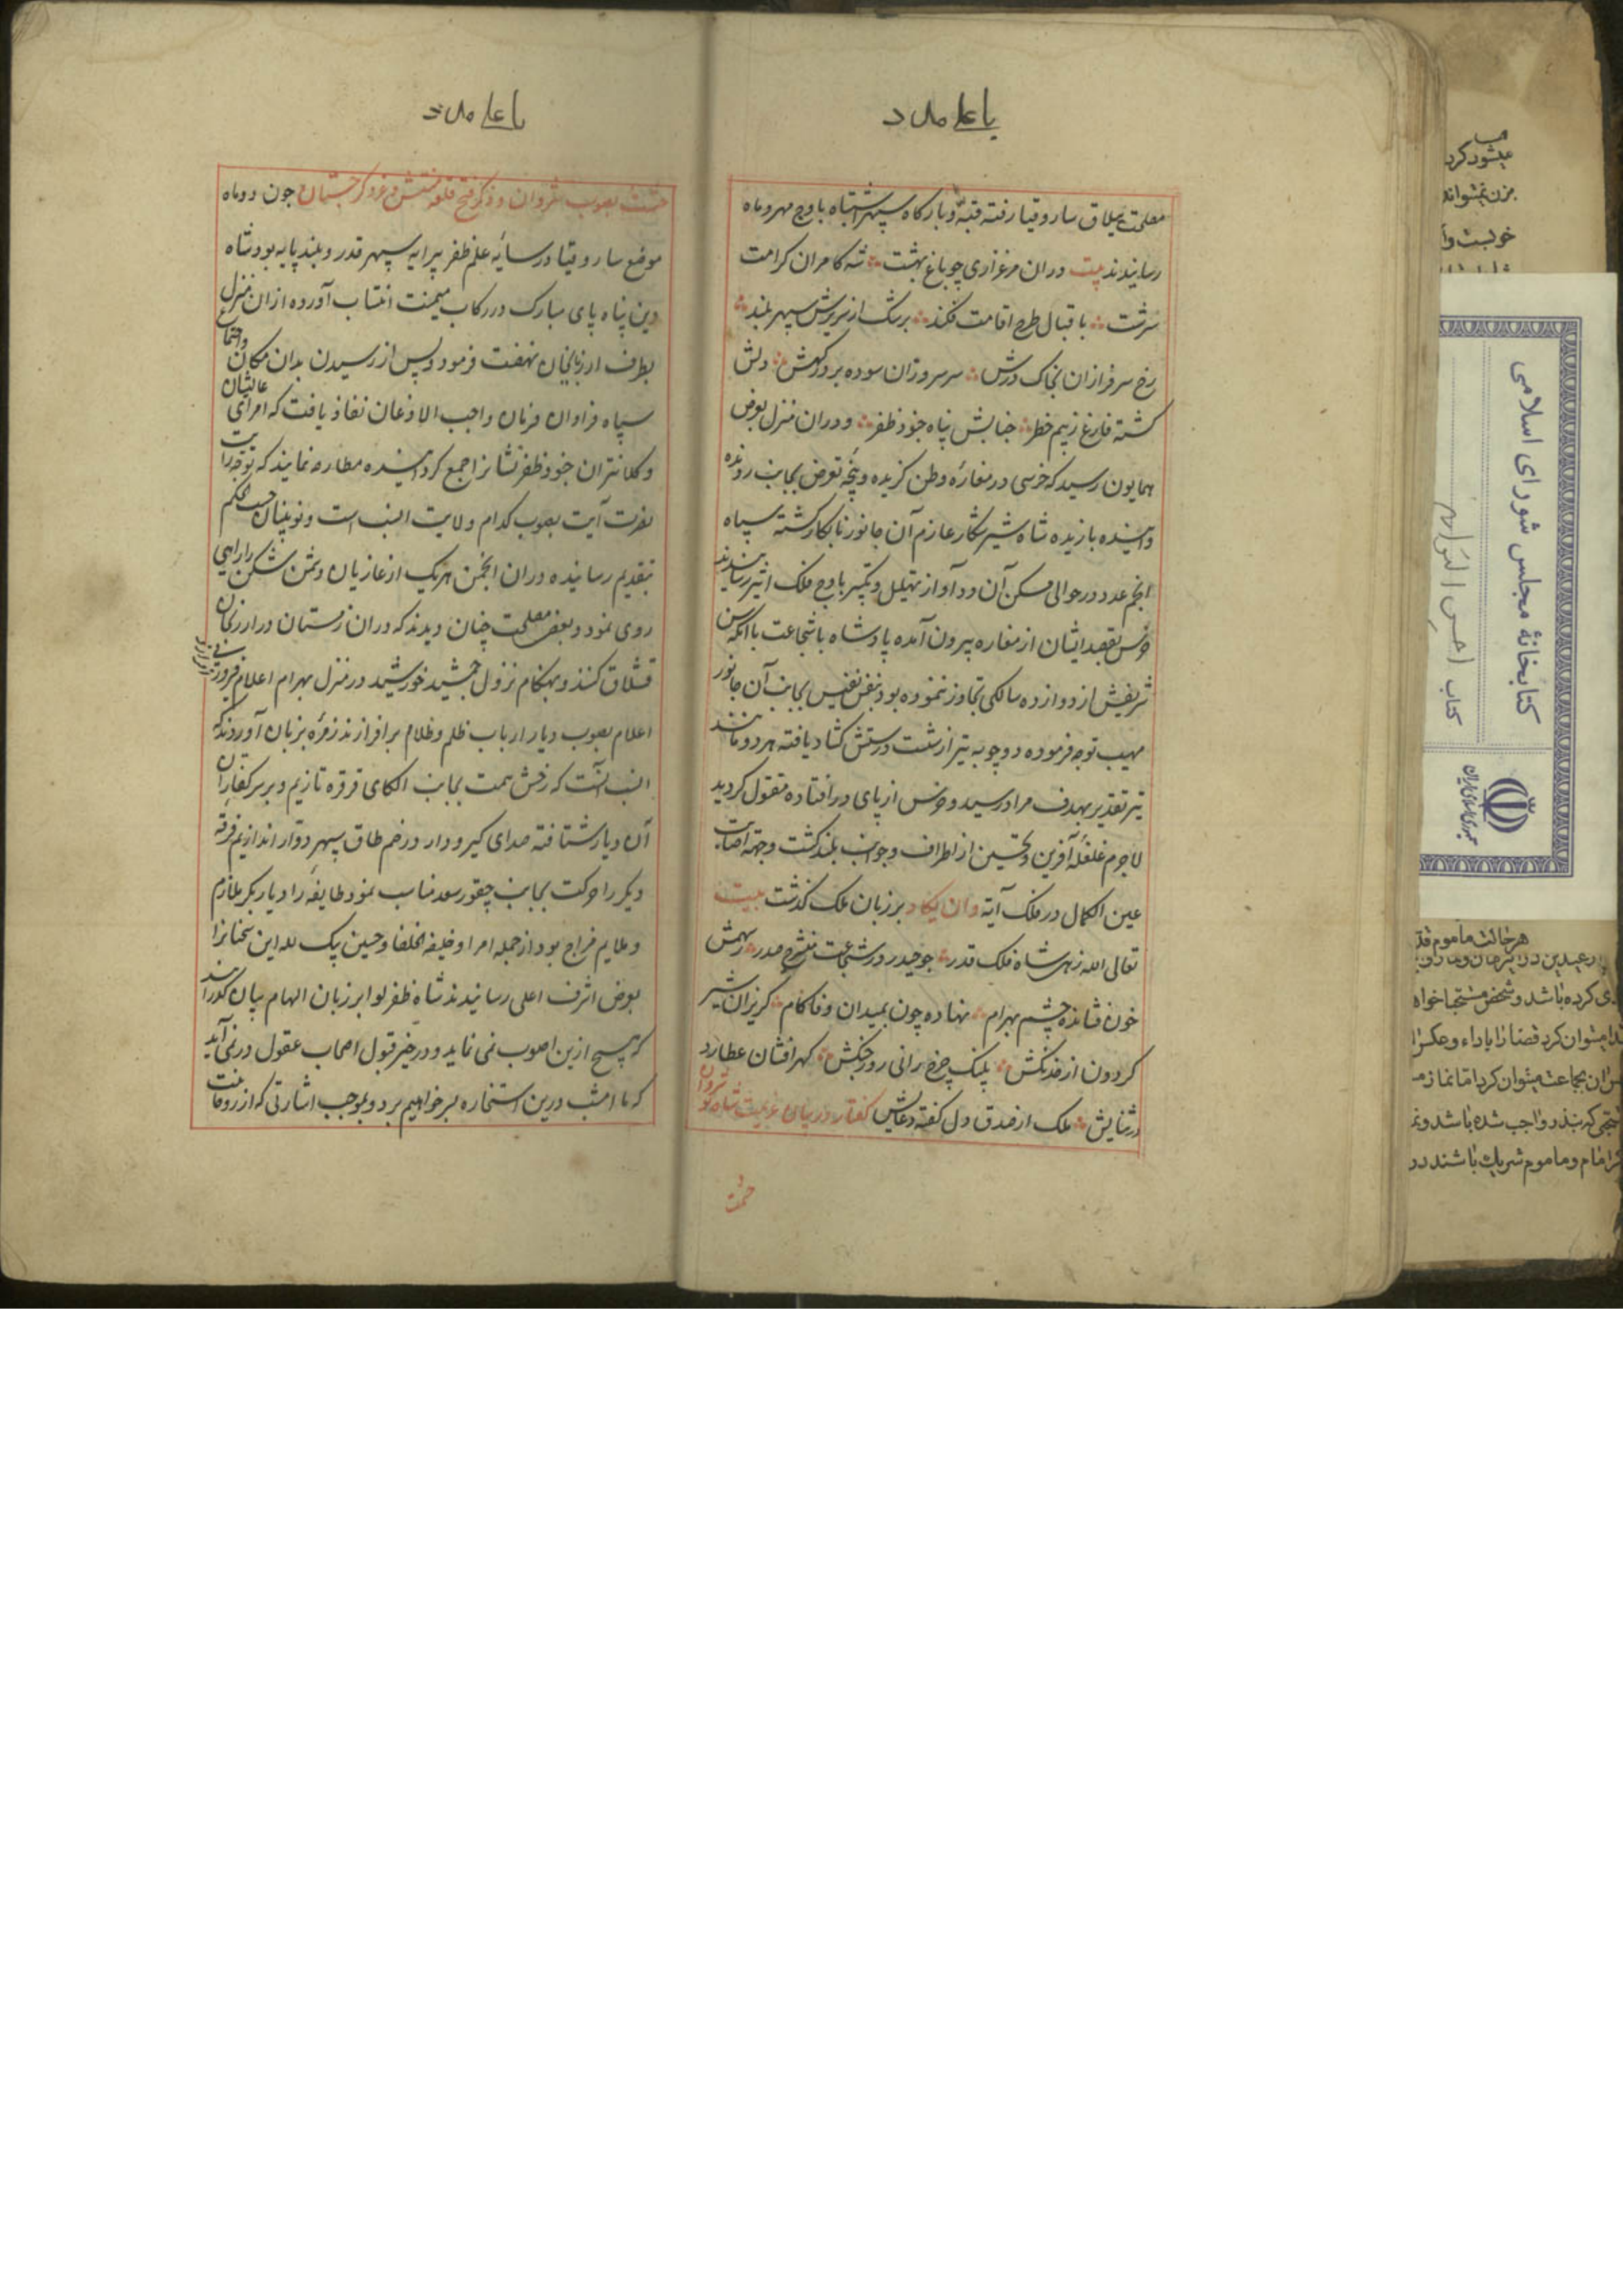 یا علی مدد
مصلحت ییلاق ساروقیا رفته قبّه و بارگاه سپهر اشتباه باوج مهر و ماه
رسانیدند بیت دران مرغزاری چو باغ بهشت شه کامران کرامت
سرشت باقبال طرح اقامت فکند برشک از سریرش سپهر بلند
رخ سرفرازان بخاک درش سر سروران سوده بر درگهش دلش
گشته فارغ ز بیم خطر جنابش پناه جنود ظفر و دران منزل بعرض
همایون رسید که خرسی در مغارۀ وطن گزیده و پنجۀ تعرض بجانب رونده
وآینده یازیده شاه شیر شکار عازم آن جانور نابکار گشته سپاه
انجم عدد در حوالی مسکن آن دد آواز تهلیل و تکبیر باوج فلک اثیر رسانیدند
خرس بقصد ایشان از مغاره بیرون آمده پادشاه باشجاعت باآنکه سن
شریفش از دوازده سالگی تجاوز ننموده بود بنفس نفیس بجانب آن جانور
مهیب توجه فرموده دو چوبه تیر از شست درستش گشاد یافته هر دو مانند
تیر تقدیر بهدف مراد رسید و خرس از پای در افتاده مقتول گردید
لاجرم غلغلۀ آفرین و تحسین از اطراف و جوانب بلند گشت و جهة اصابت
عین الکمال در فلک آیۀ وان یکاد بر زبان ملک گذشت بیت
تعالی الله زهی شاه فلک قدر چو حیدر در شجاعت منشرح صدر ز سهمش
خون فشانده چشم بهرام نهاده چون بمیدان وغا گام گریزان شیر
گردون از خدنگش پلنگ چرخ رانی روز جنگش گهر افشان عطارد
در ثنایش ملک از صدق دل گفته دعایش گفتار در بیان عزیمت شاه
یا علی مدد
بصوب شروان و ذکر فتح قلعه و غزو گرجستان چون دو ماه
موضع ساروقیا در سایۀ علم ظفر پیرایه سپهر قدر و بلند پایه بود شاه
دین پناه پای مبارک در رکاب میمنت انتساب آورده ازان منزل
بطرف ارزنجان نهضت فرمود و پس از رسیدن بدان مکان واجتماع
سپاه فراوان فرمان واجب الاذعان نفاذ یافت که امرای عالیشان
و کلانتران جنود ظفر نشانرا جمع گردانیده مطارحه نمایند که توجه رایت
نصرت آیت بصوب کدام ولایت انسب است و نوینیان حسب الحکم
بتقدیم رسانیده دران انجمن هریک از غازیان دشمن شکن را رایی
روی نمود و بعضی مصلحت چنان دیدند که دران زمستان در ارزنجان
قشلاق کنند و بهنگام نزول جمشید خورشید در منزل بهرام اعلام
اعلام بصوب دیار ارباب ظلم و ظلام بر افرازند زمرۀ بزبان آوردند که
انسب آنست که رخش همت بجانب الکای قرقره تازیم و بر سر کفار
آن دیار شتافته صدای گیرودار در خم طاق سپهر دوّار اندازیم فرقۀ
دیگر را حرکت بجانب چقور سعد مناسب نمود طایفۀ را دیار بکر ملازم
و ملایم مزاج بود از جمله امرا و خلیفة الخلفا و حسین بیک لله این سخنانرا
بعرض اشرف اعلی رسانیدند شاه ظفر لوا بر زبان الهام بیان گذرانید
که هیچ ازین اصوب نمی نماید و در خیر قبول اصحاب عقول در نمی آید
که ما امشب درین استخاره بسر خواهیم برد و بموجب اشارتی که از
کتابخانهٔ مجلس شورای اسلامی
کتاب احسن التواریخ
جمهوری اسلامی ایران